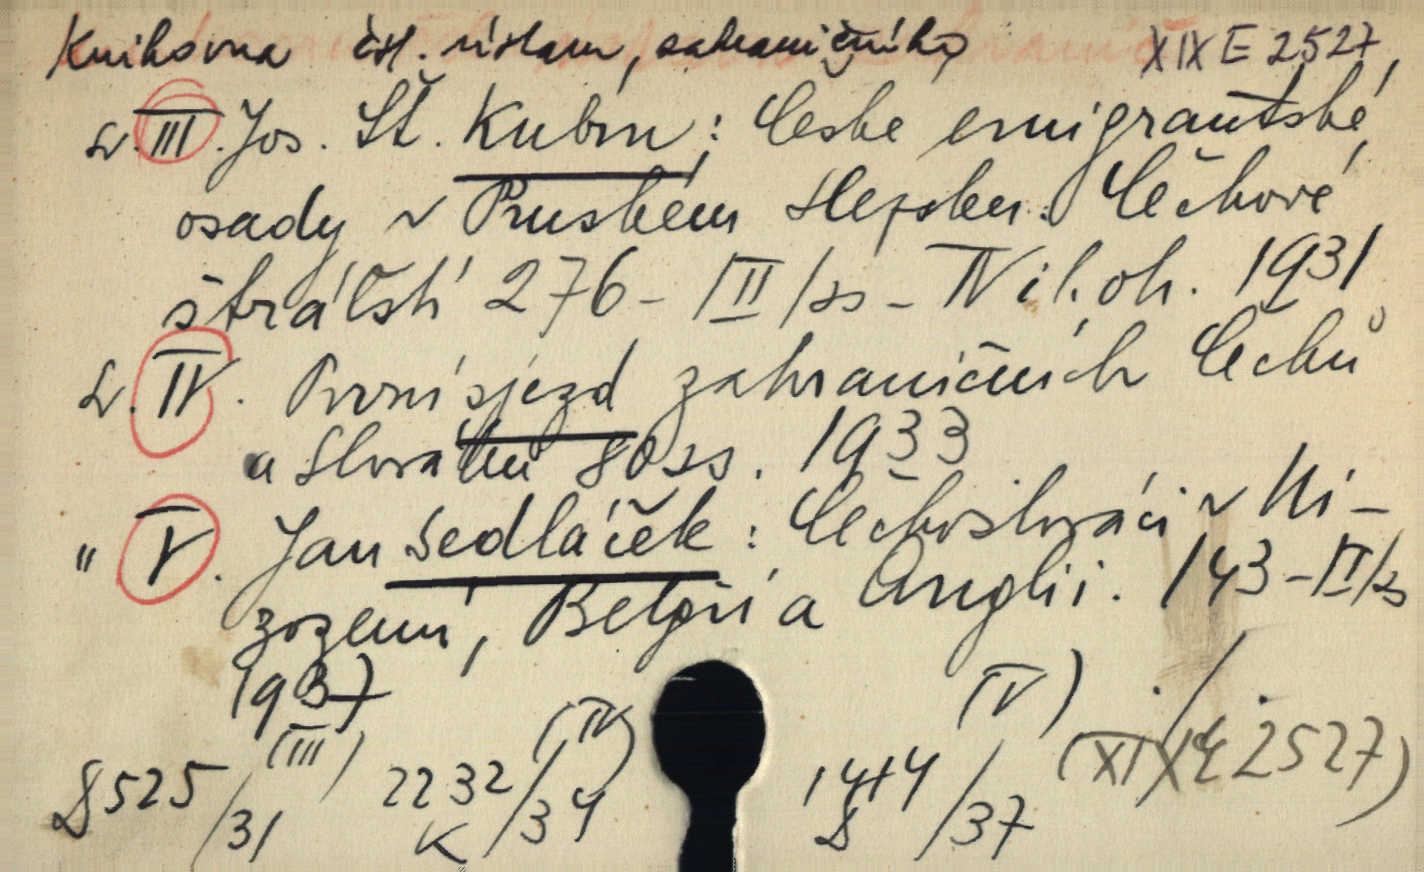 Knihovna čsl. ústavu zahraničního XIX E 2527
sv. III. Jos. Št. Kubín: České emigrantské
osady v Pruském Slezsku. Čechové
štrálští 276 - /II/ ss - IV il. ob. 1931
sv. IV. První sjezd zahraničních Čechů
a Slováků 80 ss. 1933
" V. Jan Sedláček: Čechoslováci v Ni-
zozemí, Belgii a Anglii. 143 - /II/ ss
1937 ./.
(III) (IV) (V) (XIX E 2527)
525/31 2232/34 K /37